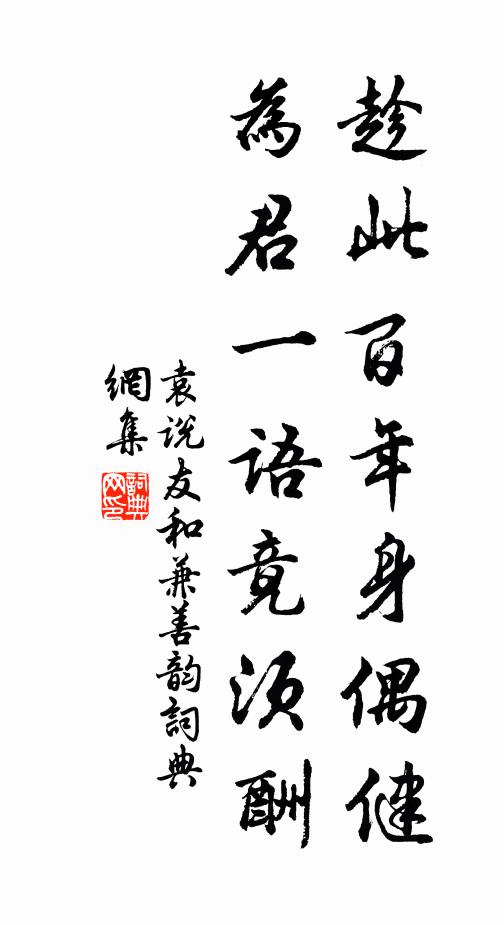 趁此百年身偶健
為君一語竟須酬
袁说友和兼善韵詞典
網集
詞典
网印